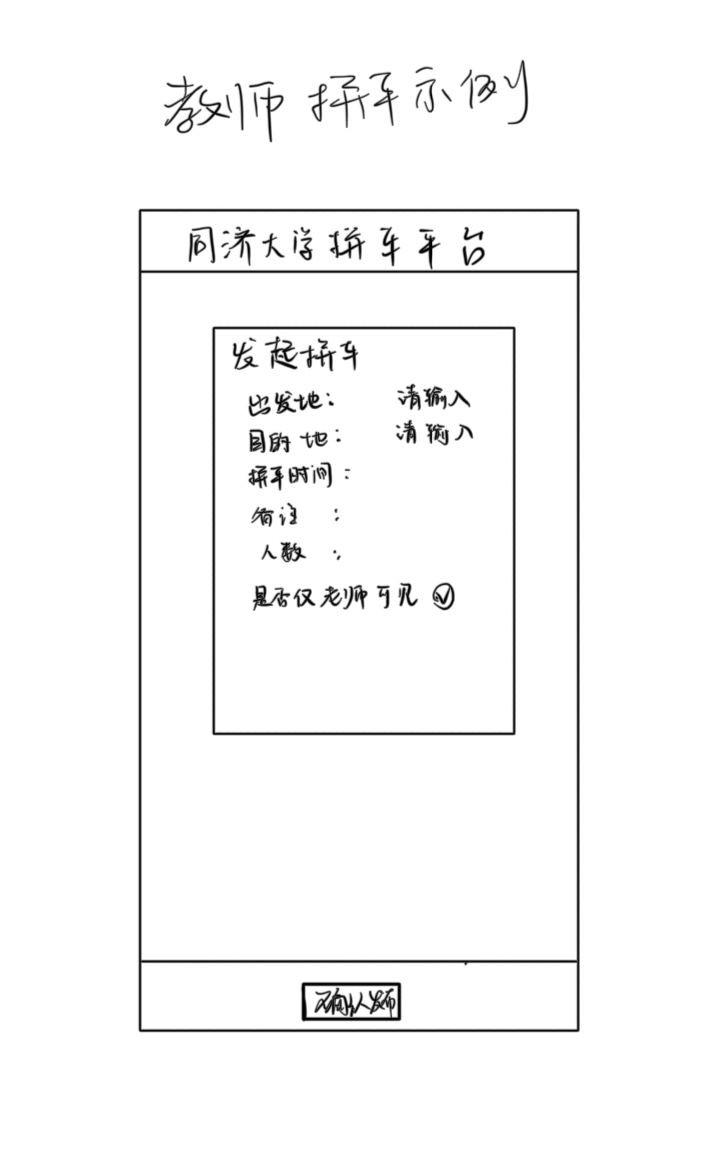 教师拼车示例
同济大学拼车平台
发起拼车
出发地： 请输入
目的地： 请输入
拼车时间：
备注：
人数：
是否仅老师可见
确认发布